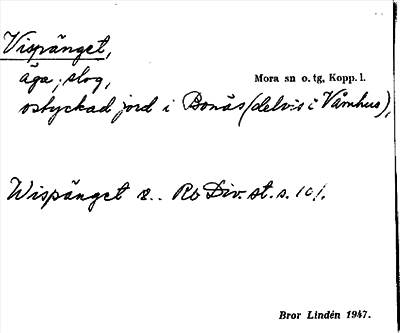 Vispänget,
äga, slog,
Mora sn o. tg, Kopp. l.
ostyckad jord i Bonäs (delvis i Våmhus),
Wispänget Rb Div. st. s. 101.
Bror Lindén 1947.